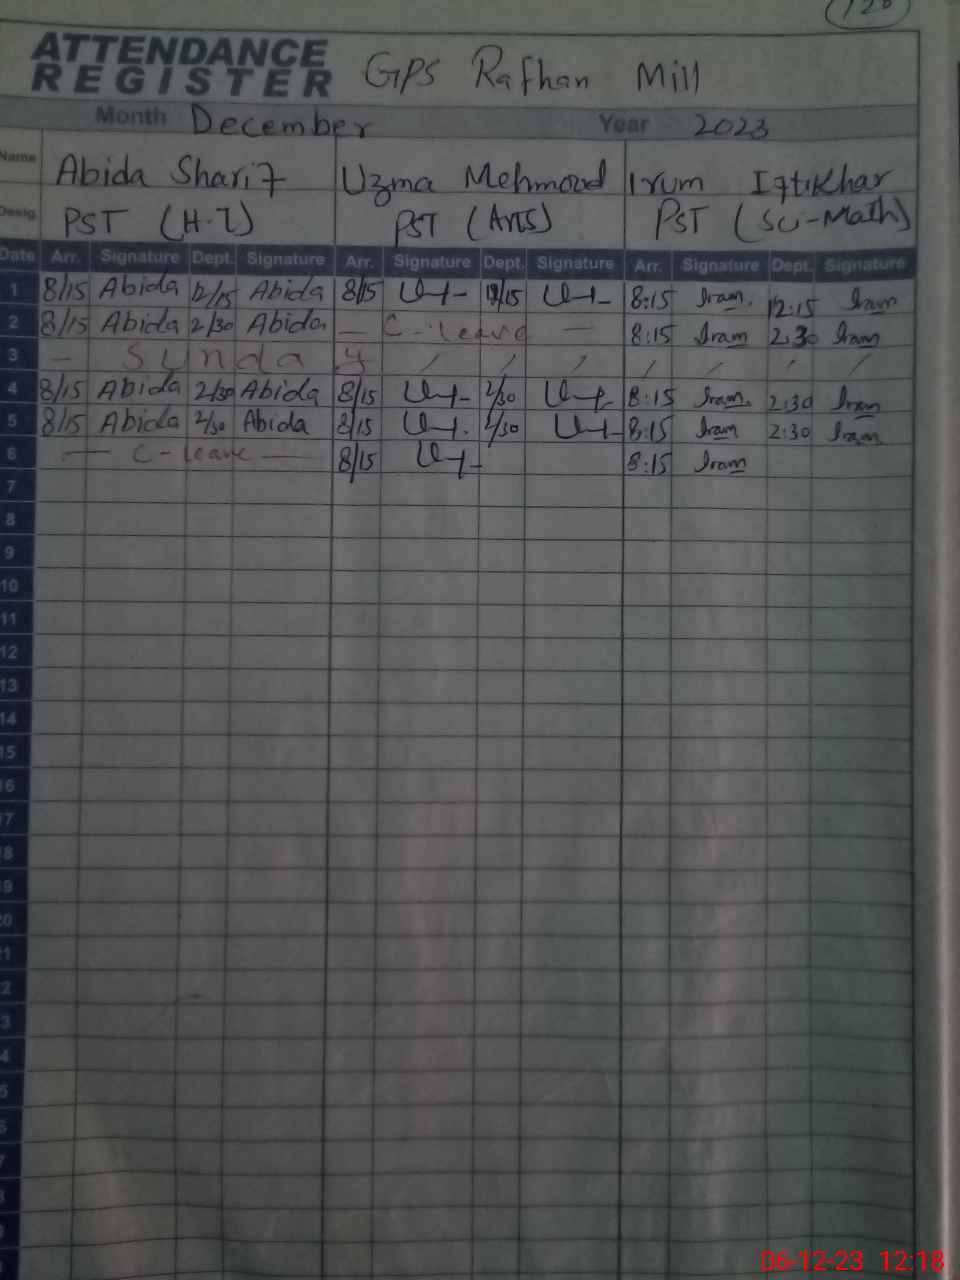 120
ATTENDANCE
REGISTER GPS Rafhan Mill
Month December Year 2023
Name Abida Sharif Uzma Mehmood Irum Iftikhar
Desig. PST (H-T) PST (Arts) PST (Sci-Math)
Date Arr. Signature Dept. Signature Arr. Signature Dept. Signature Arr. Signature Dept. Signature
1 8/15 Abida 12/15 Abida 8/15 12/15 8:15 Iram. 12:15 Iram
2 8/15 Abida 2/30 Abida — C-leave — 8:15 Iram 2:30 Iram
3 — Sunday
4 8/15 Abida 2/30 Abida 8/15 2/30 8:15 Iram. 2:30 Iram
5 8/15 Abida 2/30 Abida 8/15 2/30 8:15 Iram 2:30 Iram
6 — C-leave — 8/15 8:15 Iram
7
8
9
10
11
12
13
14
15
16
17
18
19
20
21
2
3
4
5
6
7
8
06-12-23 12:18